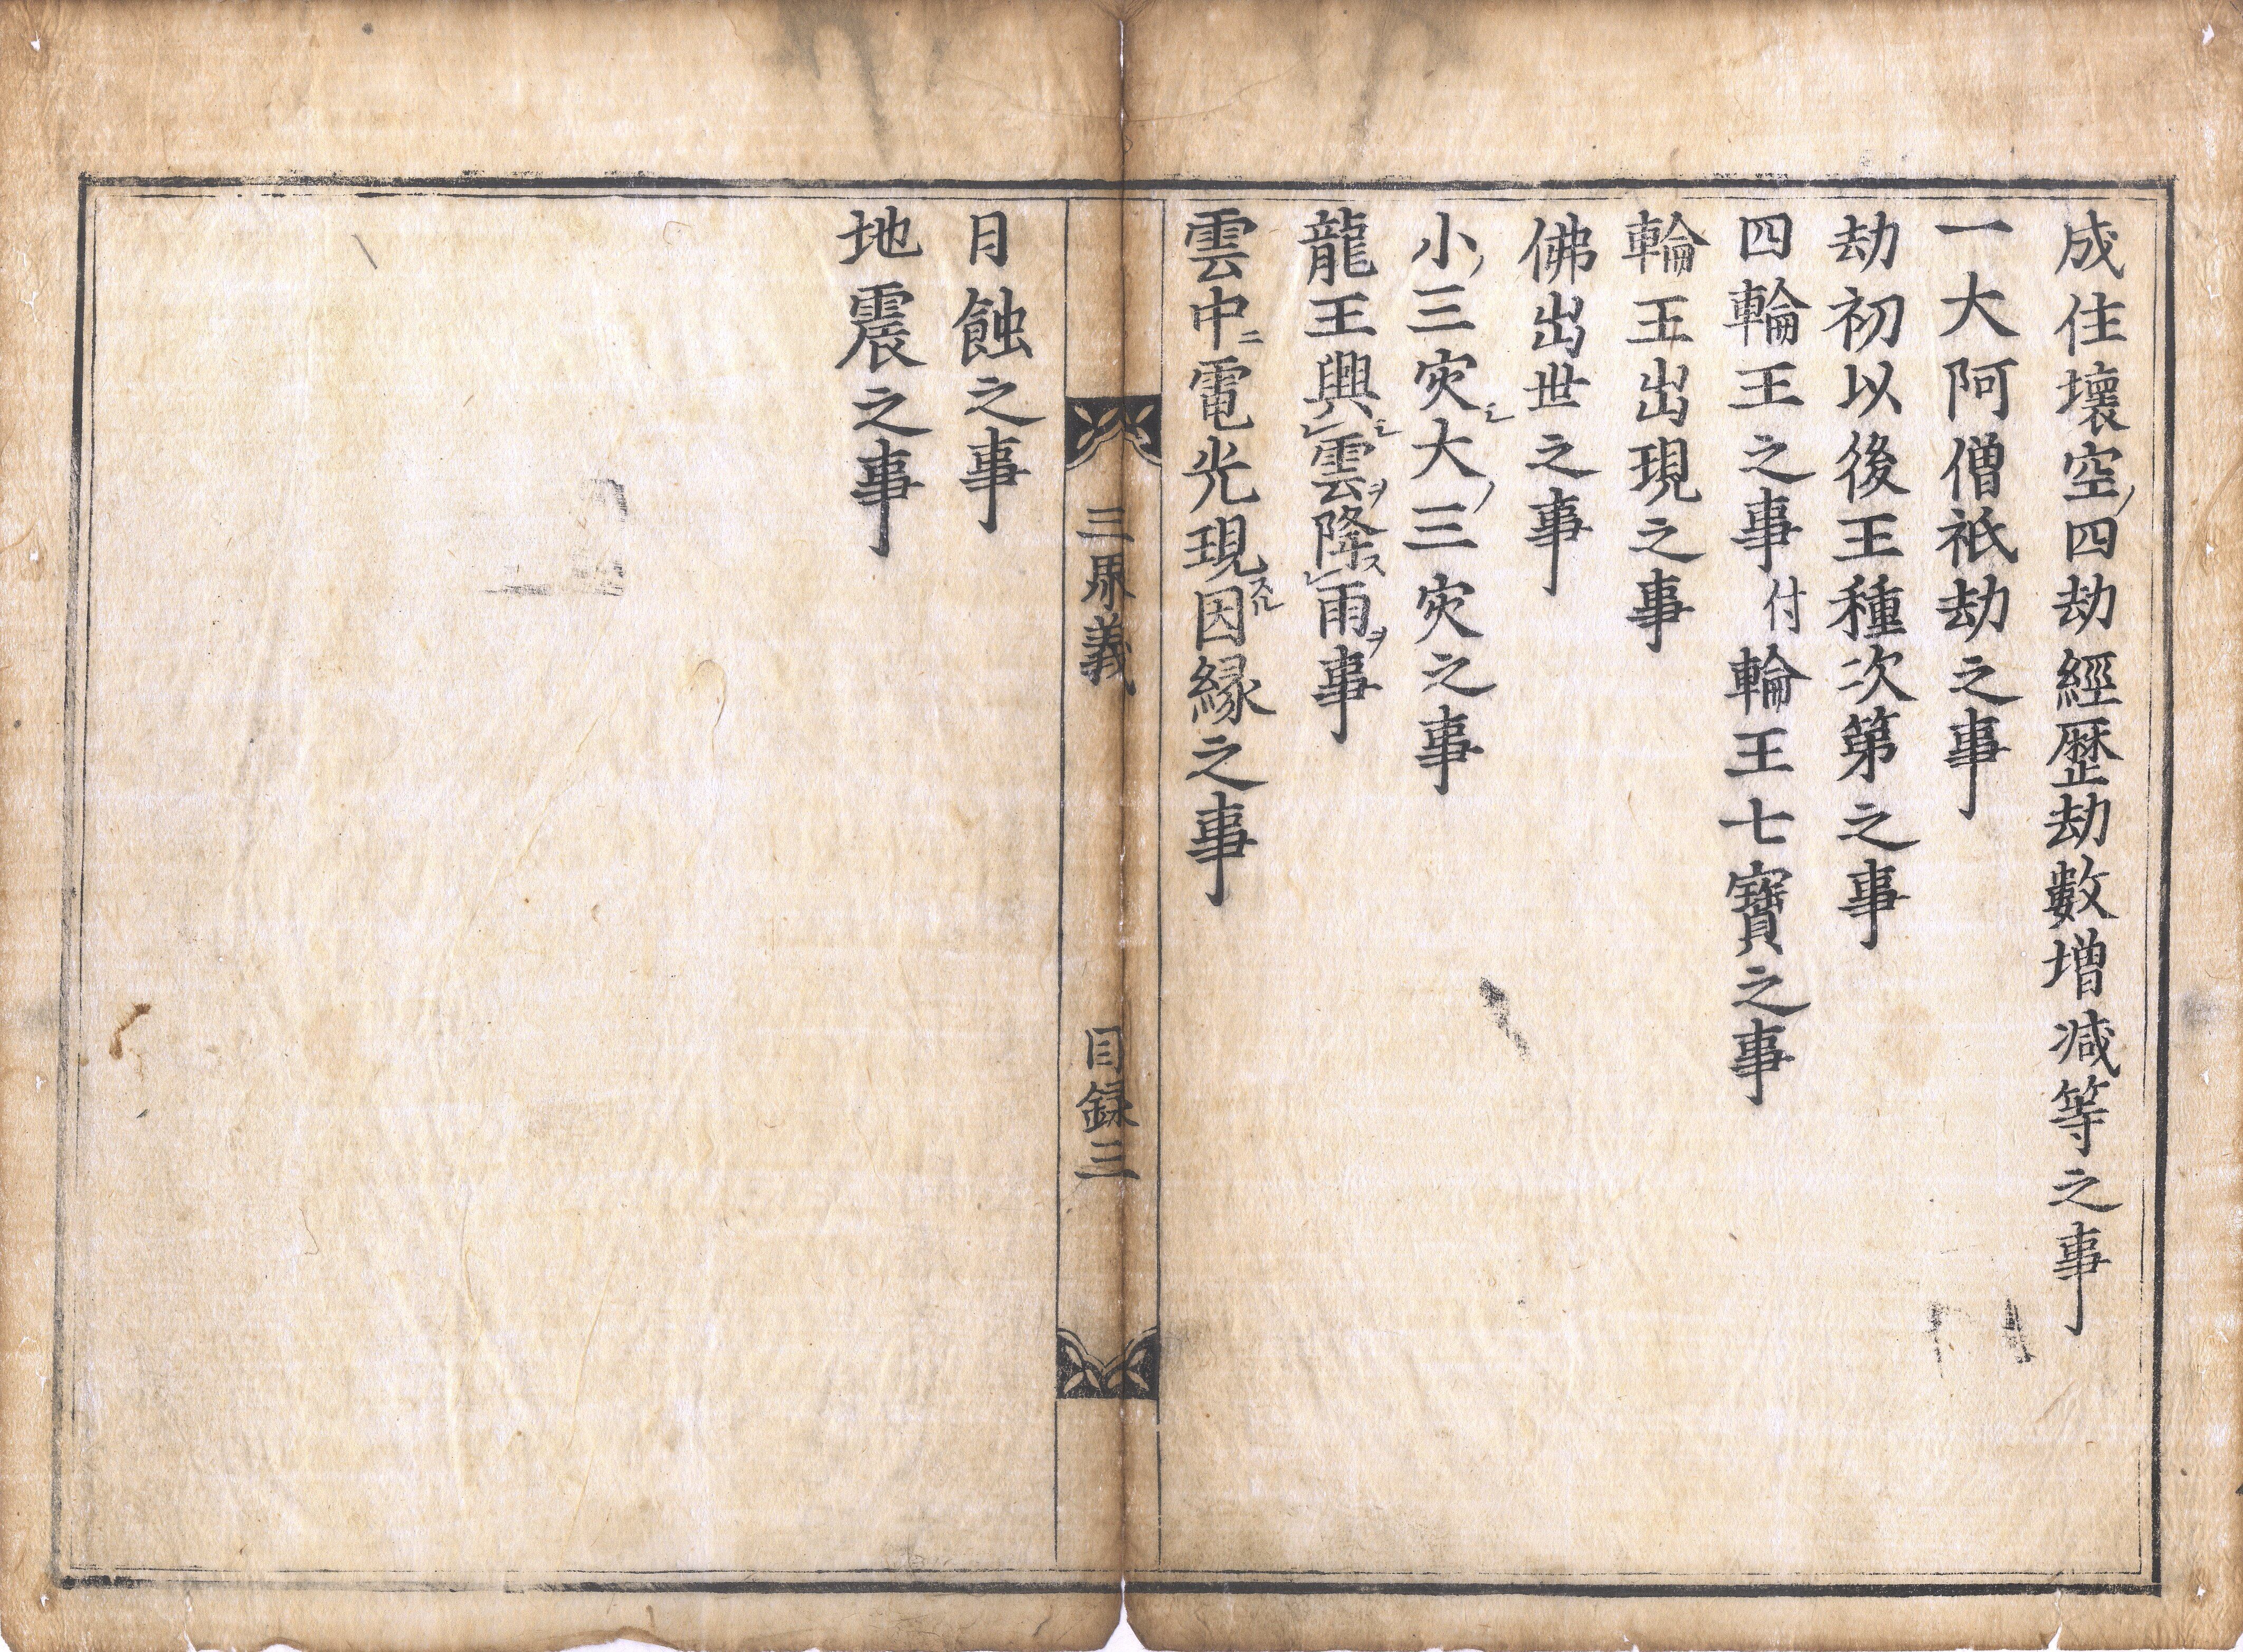 成住壞空ノ四劫經歴劫數増減等之事
一大阿僧祇劫之事
劫初以後王種次第之事
四輪王之事付輪王七寶之事
輪王出現之事
佛出世之事
小ノ三灾シ大ノ三灾之事
龍王興シレ雲ヲ降スレ雨ヲ事
雲中ニ電光現スル因縁之事
三界義 目録三
月蝕之事
地震之事